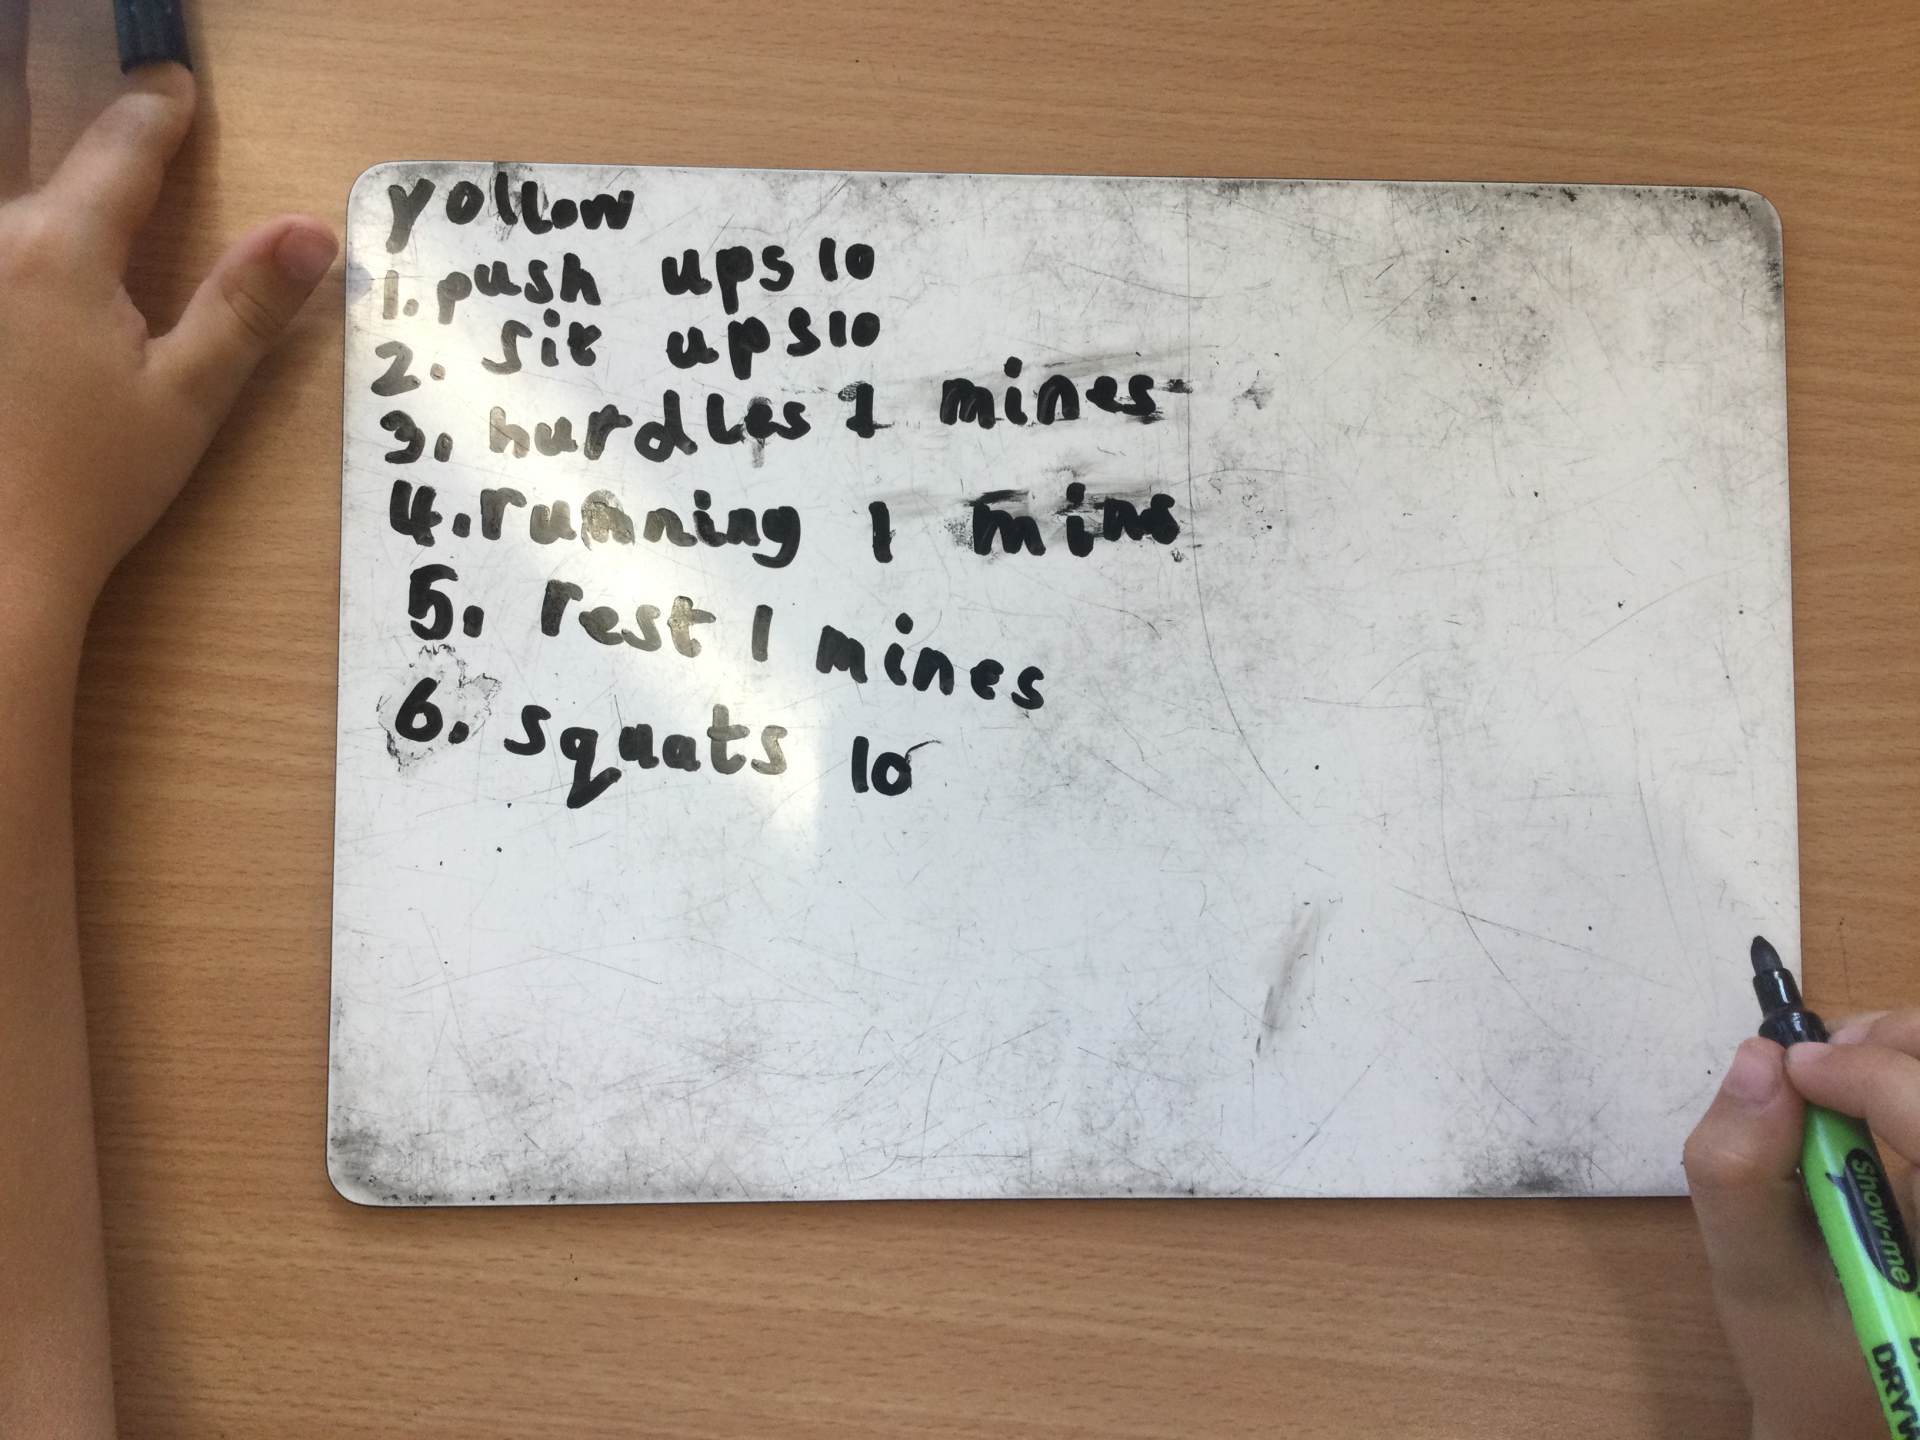 yollow
1. push ups 10
2. sit ups 10
3. hurdles 1 mines
4. running 1 mins
5. rest 1 mines
6. squats 10
show-me
DRYW